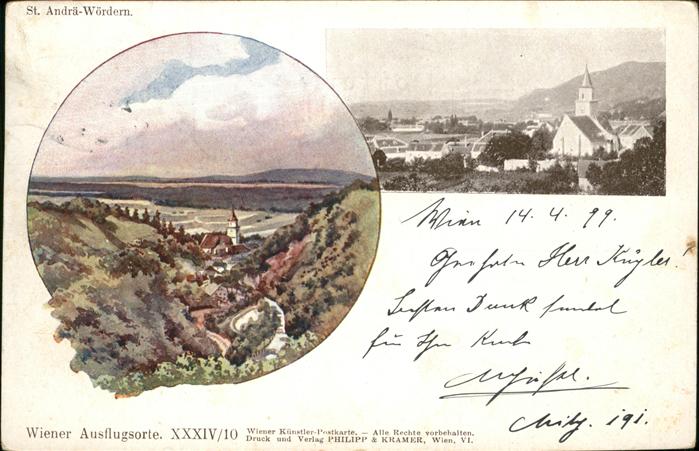 St. Andrä-Wördern.
Wien 14. 4. 99.
Herr Kügler!
Dank
für Ihr
191.
Wiener Ausflugsorte. XXXIV/10
Wiener Künstler-Postkarte. — Alle Rechte vorbehalten.
Druck und Verlag PHILIPP & KRAMER, Wien, VI.